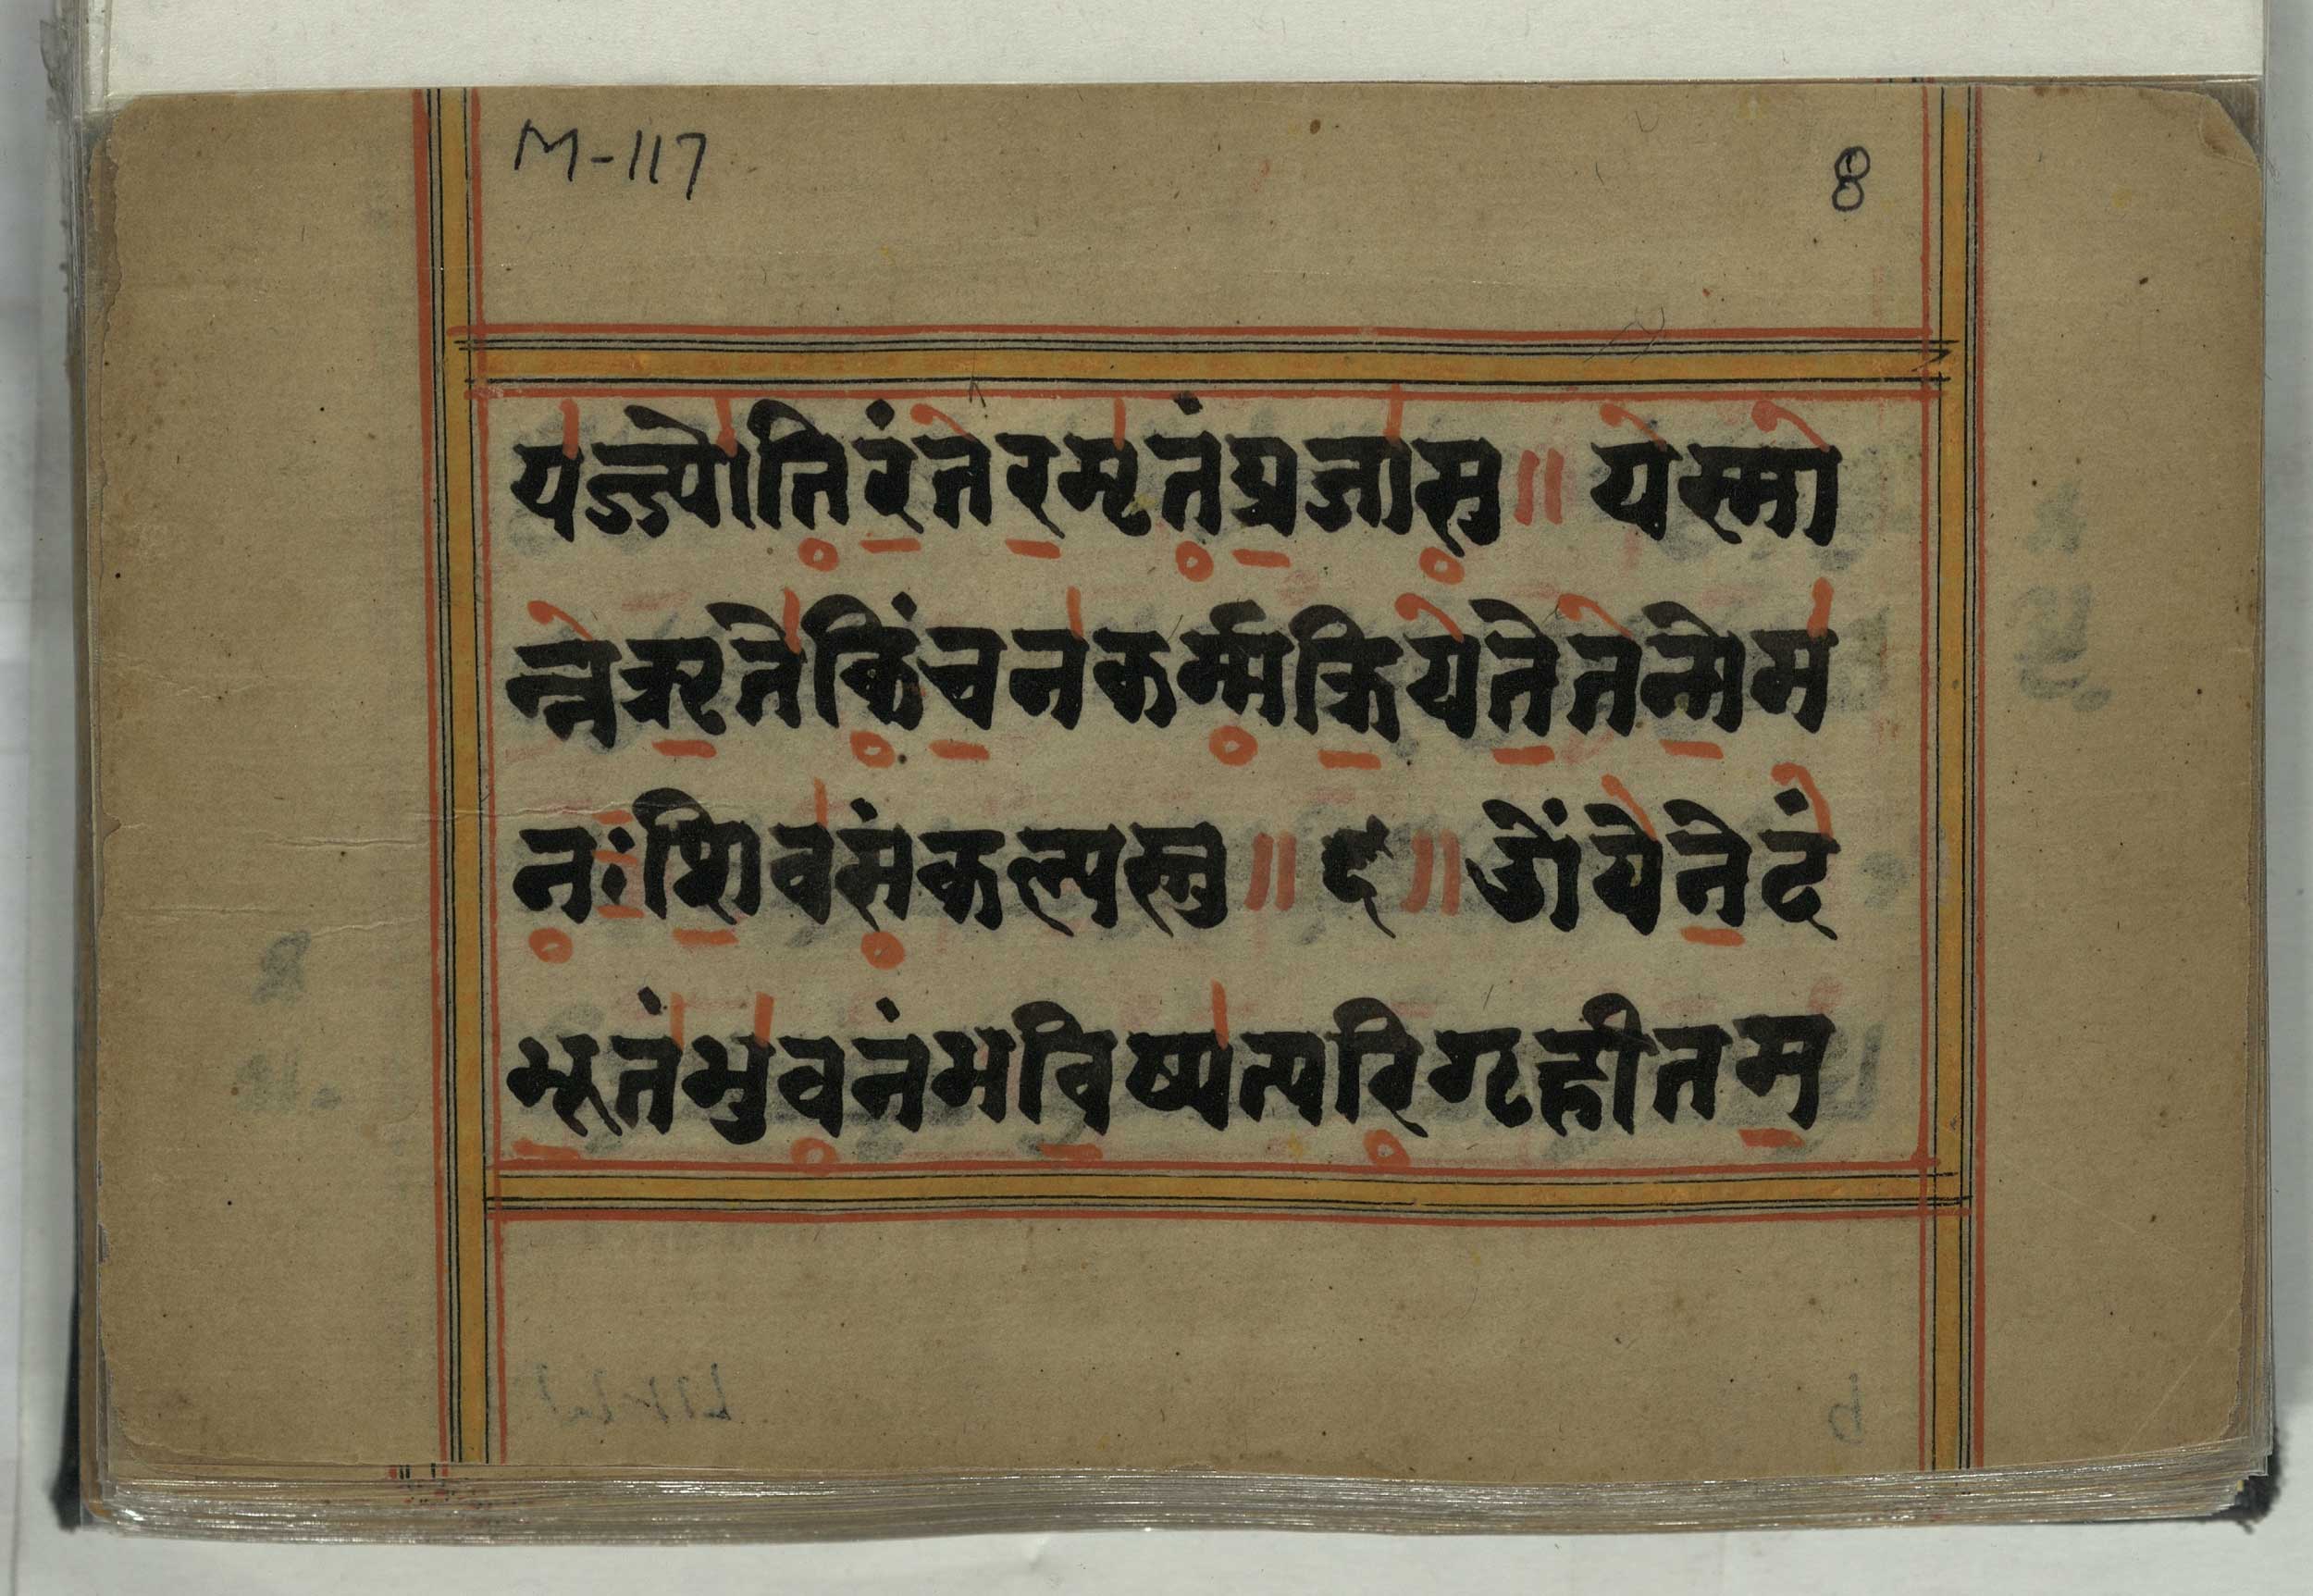 M-117
8
यज्ज्योतिरंतरमृतंप्रजासु॥ यस्मा
न्नऋतेकिंचनकर्म्मक्रियतेतन्मेम
नःशिवसंकल्पस्तु॥६॥ ओंयेनेदं
भूतंभुवनंभविष्यत्परिगृहीतम